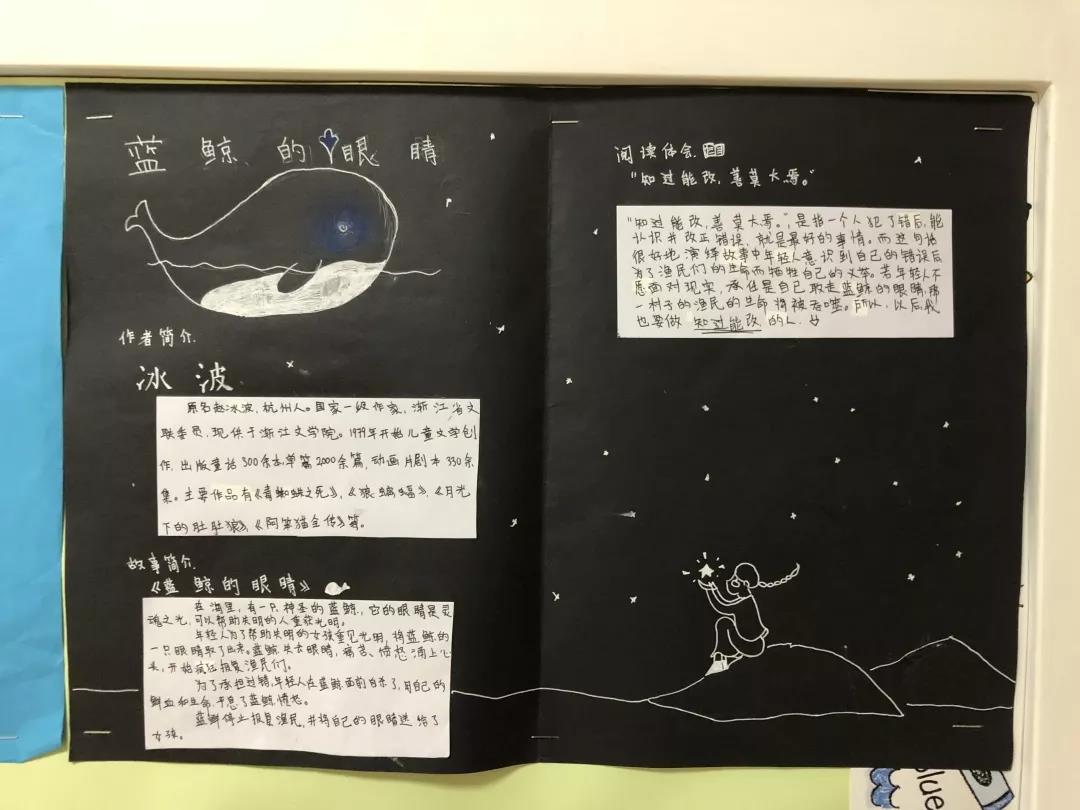 蓝鲸的眼睛
作者简介
冰波
原名赵冰波，杭州人。国家一级作家，浙江省文
联委员，现供于浙江文学院。1979年开始儿童文学创
作，出版童话300余本单篇2000余篇，动画片剧本330余
集。主要作品有《青蜘蛛之死》，《狼蝙蝠》，《月光
下的肚肚狼》，《阿笨猫全传》等。
故事简介
《蓝鲸的眼睛》
在海里，有一只神圣的蓝鲸，它的眼睛是灵
魂之光，可以帮助失明的人重获光明。
年轻人为了帮助失明的女孩重见光明，将蓝鲸的
一只眼睛取了出来。蓝鲸失去眼睛，痛苦、愤怒涌上心
头，开始疯狂报复渔民们。
为了承担过错，年轻人在蓝鲸面前自杀了，用自己的
鲜血和生命，平息了蓝鲸愤怒。
蓝鲸停止报复渔民，并将自己的眼睛送给了
女孩。
阅读体会
“知过能改，善莫大焉。”
“知过能改，善莫大焉。”，是指一个人犯了错后，能
认识并改正错误，就是最好的事情。而这句话
很好地演绎故事中年轻人意识到自己的错误后
为了渔民们的生命而牺牲自己的义举。若年轻人不
愿面对现实，承担是自己取走蓝鲸的眼睛，那
一村子的渔民的生命将被吞噬。所以，以后我
也要做知过能改的人。
blue